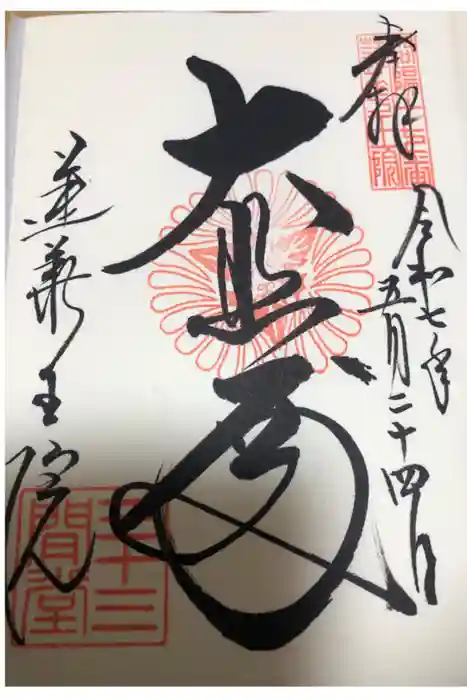 奉拝
令和七年
五月二十四日
大悲閣
蓮華王院
三十三
間堂